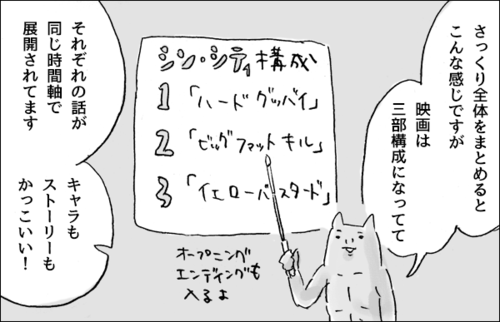 さっくり全体をまとめると
こんな感じですが
映画は
三部構成になってて
シン・シティ構成
1「ハードグッバイ」
2「ビッグファットキル」
3「イエローバスタード」
オープニング
エンディングも
入るよ
それぞれの話が
同じ時間軸で
展開されてます
キャラも
ストーリーも
かっこいい！